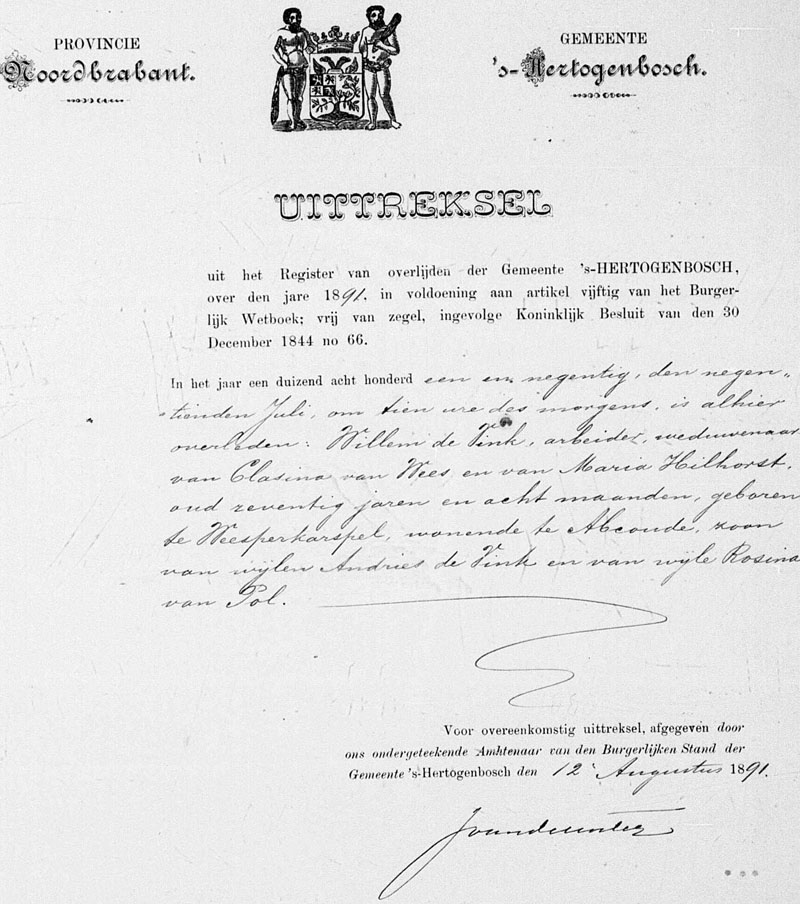 PROVINCIE
Noordbrabant.
GEMEENTE
's-Hertogenbosch.
UITTREKSEL
uit het Register van overlijden der Gemeente 's-HERTOGENBOSCH,
over den jare 1891, in voldoening aan artikel vijftig van het Burger-
lijk Wetboek; vrij van zegel, ingevolge Koninklijk Besluit van den 30
December 1844 no 66.
In het jaar een duizend acht honderd een en negentig, den negen-
tienden Juli, om tien ure des morgens, is alhier
overleden: Willem de Vink, arbeider, weduwenaar
van Clasina van Wees, en van Maria Hilhorst,
oud zeventig jaren en acht maanden, geboren
te Weesperkarspel, wonende te Abcoude, zoon
van wijlen Andries de Vink en van wijle Rosina
van Pol.
Voor overeenkomstig uittreksel, afgegeven door
ons ondergeteekende Amhtenaar van den Burgerlijken Stand der
Gemeente 's-Hertogenbosch den 12 Augustus 1891.